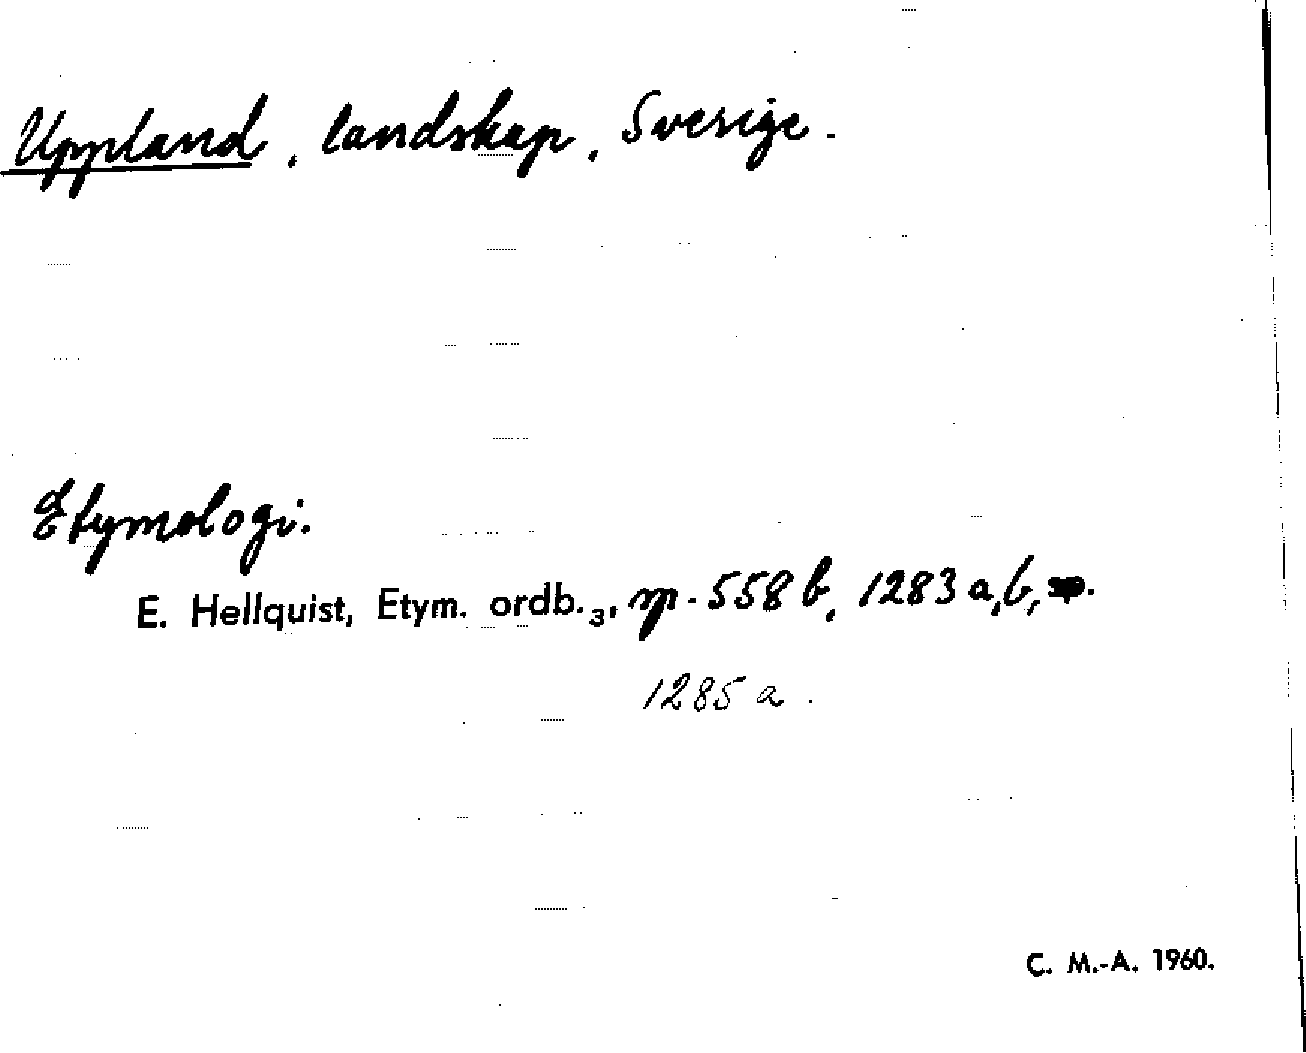 Uppland, landskap, Sverige.
Etymologi.
E. Hellquist, Etym. ordb.₃, sp. 558 b, 1283 a, b,
1285 a.
C. M.-A. 1960.